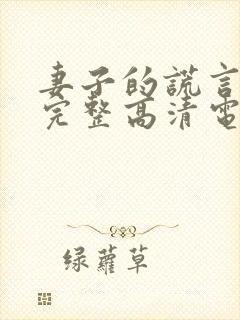 妻子的謊言
完整高清電
绿蘿草